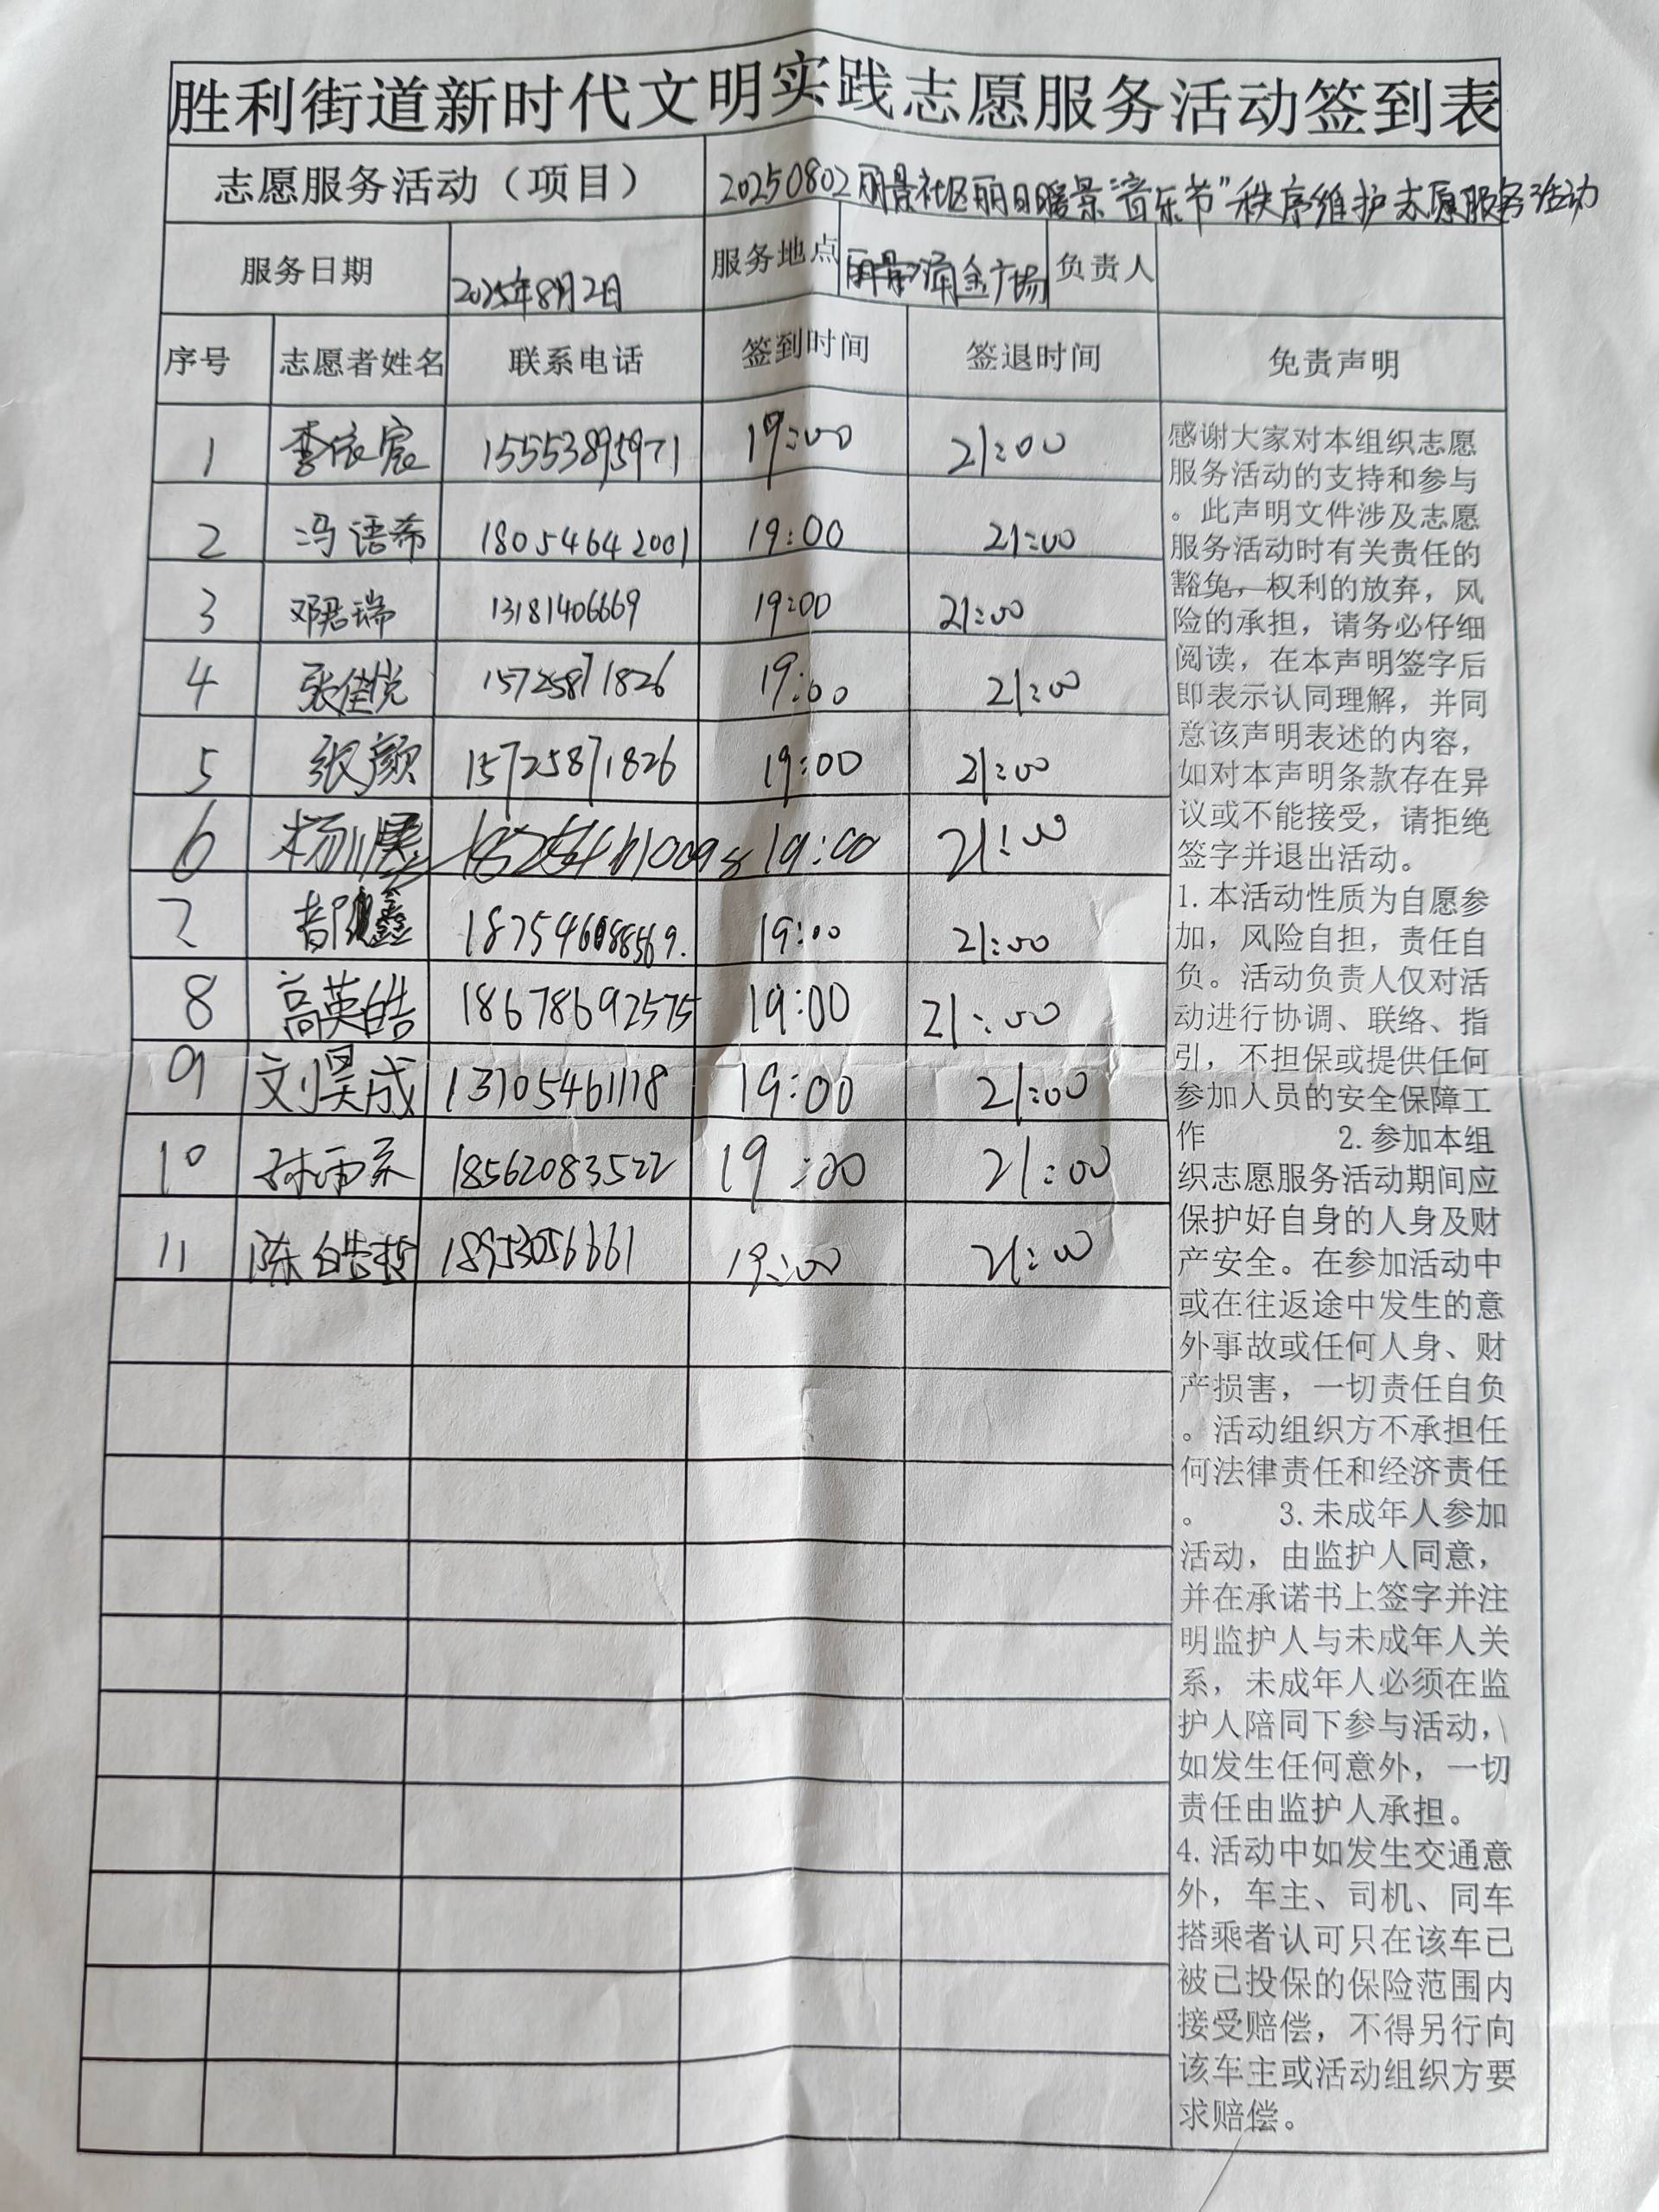 胜利街道新时代文明实践志愿服务活动签到表
志愿服务活动（项目） 20250802丽景社区丽日暖景"音乐节"秩序维护志愿服务活动
服务日期 2025年8月2日 服务地点 丽景涌金广场 负责人
序号 志愿者姓名 联系电话 签到时间 签退时间 免责声明
1 李依宸 15553895971 19:00 21:00
2 冯语希 18054642001 19:00 21:00
3 邓君瑞 13181406669 19:00 21:00
4 张佳悦 15725871826 19:00 21:00
5 张颜 15725871826 19:00 21:00
6 19:00 21:00
7 19:00 21:00
8 高英皓 18678692575 19:00 21:00
9 刘昊成 13105461118 19:00 21:00
10 18562083522 19:00 21:00
11 陈皓哲 18953056661 19:00 21:00
感谢大家对本组织志愿
服务活动的支持和参与
。此声明文件涉及志愿
服务活动时有关责任的
豁免，权利的放弃，风
险的承担，请务必仔细
阅读，在本声明签字后
即表示认同理解，并同
意该声明表述的内容，
如对本声明条款存在异
议或不能接受，请拒绝
签字并退出活动。
1.本活动性质为自愿参
加，风险自担，责任自
负。活动负责人仅对活
动进行协调、联络、指
引，不担保或提供任何
参加人员的安全保障工
作 2.参加本组
织志愿服务活动期间应
保护好自身的人身及财
产安全。在参加活动中
或在往返途中发生的意
外事故或任何人身、财
产损害，一切责任自负
。活动组织方不承担任
何法律责任和经济责任
。 3.未成年人参加
活动，由监护人同意，
并在承诺书上签字并注
明监护人与未成年人关
系，未成年人必须在监
护人陪同下参与活动，
如发生任何意外，一切
责任由监护人承担。
4.活动中如发生交通意
外，车主、司机、同车
搭乘者认可只在该车已
被已投保的保险范围内
接受赔偿，不得另行向
该车主或活动组织方要
求赔偿。